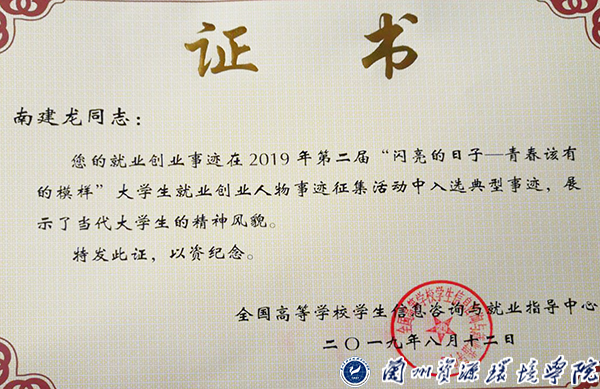 证书
南建龙同志：
您的就业创业事迹在2019年第二届“闪亮的日子—青春该有
的模样”大学生就业创业人物事迹征集活动中入选典型事迹，展
示了当代大学生的精神风貌。
特发此证，以资纪念。
全国高等学校学生信息咨询与就业指导中心
二〇一九年八月十二日
兰州资源环境学院